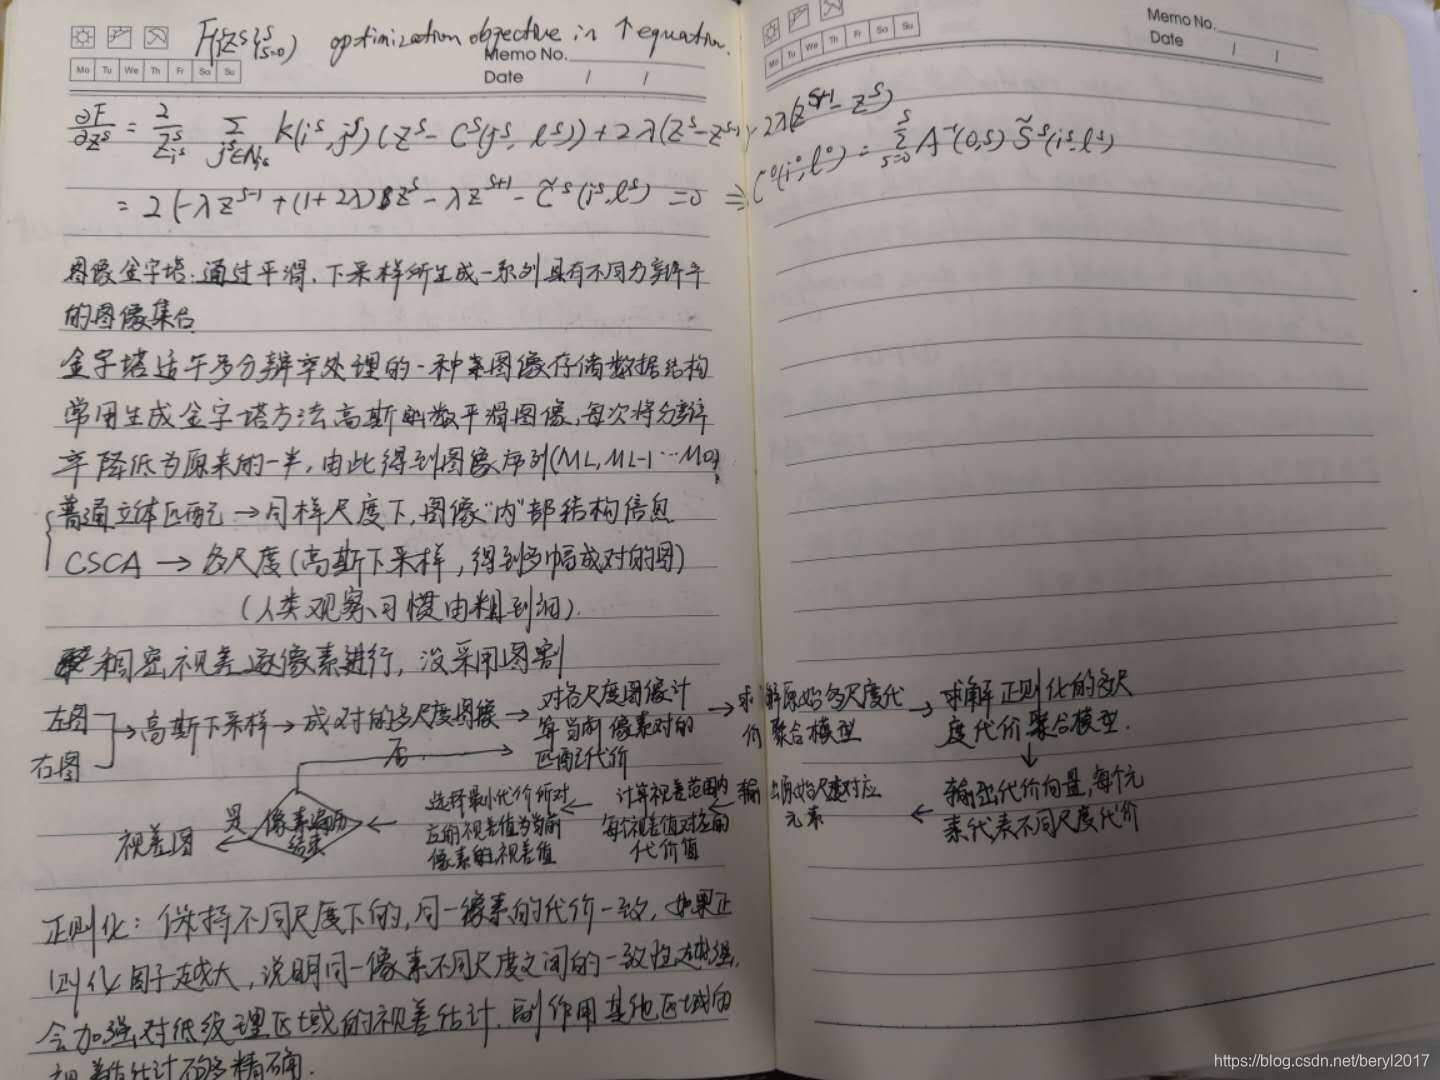 F({Z^s}^S_{s=0}) optimization objective in ↑ equation.
Memo No.
Mo Tu We Th Fr Sa Su
Date / /
∂F/∂z^s = 2/Z^s_{i^s} Σ_{j^s∈N_{i^s}} K(i^s, j^s)(z^s - C^s(j^s, l^s)) + 2λ(z^s - z^{s-1}) - 2λ(z^{s+1} - z^s)
= 2(-λz^{s-1} + (1+2λ)z^s - λz^{s+1} - C̃^s(i^s, l^s)) = 0 ⇒ C^0(i^0, l^0) = Σ^S_{s=0} A^{-1}(0,s) C̃^s(i^s, l^s)
图像金字塔:通过平滑、下采样所生成一系列具有不同分辨率
的图像集合
金字塔适于多分辨率处理的一种图像存储数据结构
常用生成金字塔方法,高斯函数平滑图像,每次将分辨
率降低为原来的一半,由此得到图像序列(ML, ML-1 … M0)
普通立体匹配 → 同样尺度下,图像"内"部结构信息
CSCA → 各尺度(高斯下采样,得到多幅成对的图)
(人类观察习惯由粗到细).
稠密,视差逐像素进行,没采用图割
左图
右图
→ 高斯下采样 → 成对的多尺度图像 → 对各尺度图像计
算当前像素对的
匹配代价
→ 求解原始多尺度代
价聚合模型
→ 求解正则化的多尺
度代价聚合模型.
输出代价向量,每个元
素代表不同尺度代价
← 输出原始尺度对应
元素
← 计算视差范围内
每个视差值对应的
代价值
← 选择最小代价所对
应的视差值为当前
像素的视差值
← 像素遍历
结束
否
是
视差图
正则化:保持不同尺度下的,同一像素的代价一致,如果正
则化因子越大,说明同一像素不同尺度之间的一致性越强,
会加强对低纹理区域的视差估计.副作用其他区域的
视差估计不够精确.
Mo Tu We Th Fr Sa Su
Memo No.
Date / /
https://blog.csdn.net/beryl2017